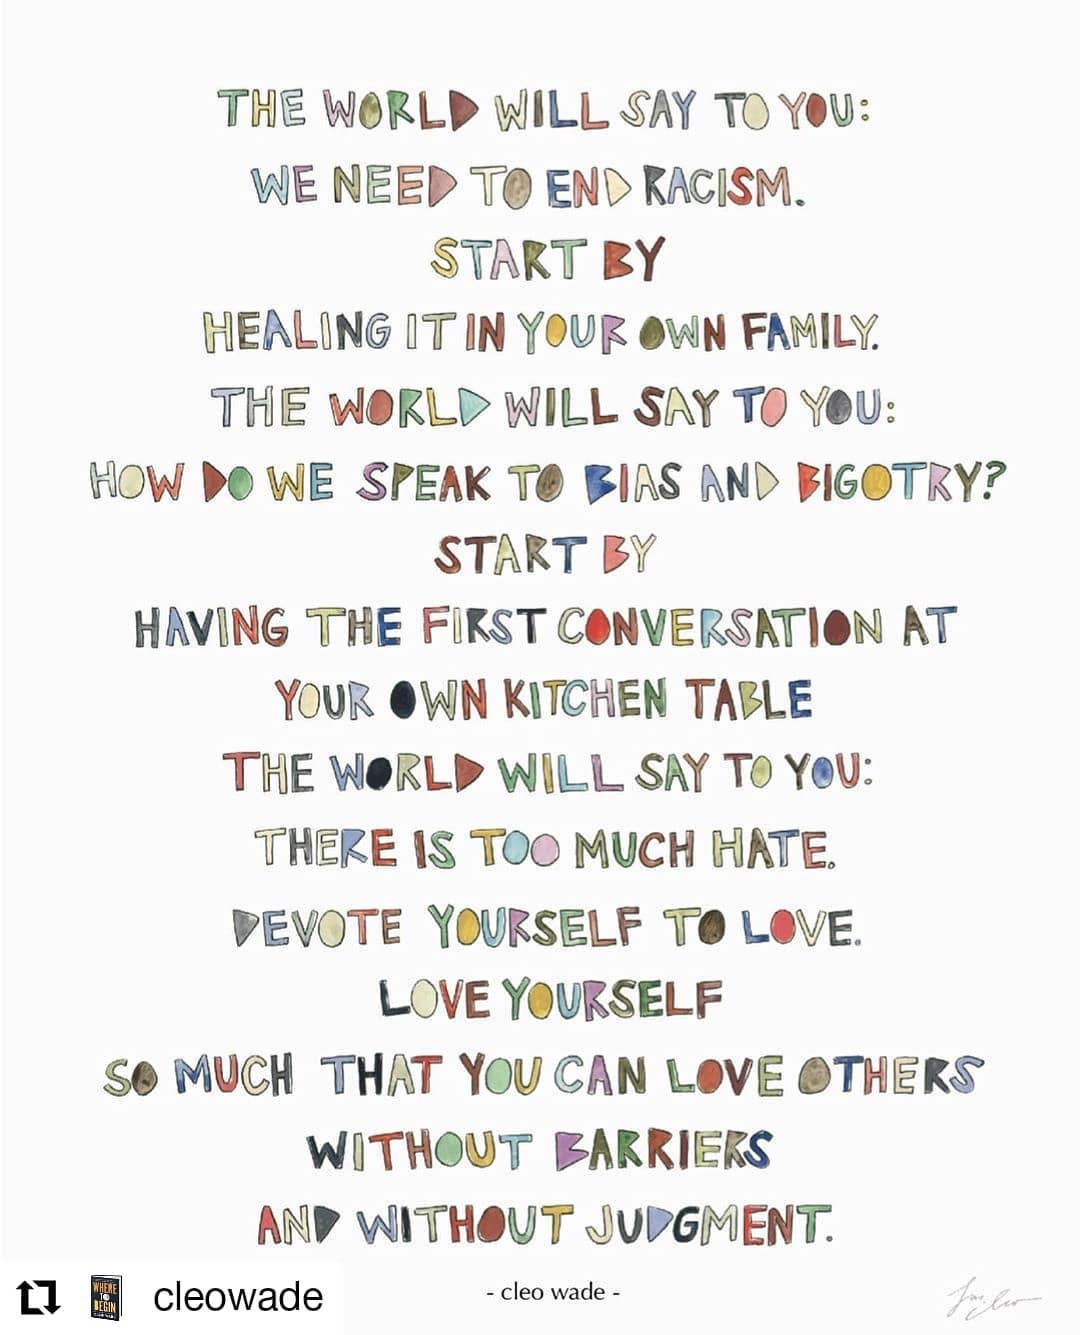 THE WORLD WILL SAY TO YOU:
WE NEED TO END RACISM.
START BY
HEALING IT IN YOUR OWN FAMILY.
THE WORLD WILL SAY TO YOU:
HOW DO WE SPEAK TO BIAS AND BIGOTRY?
START BY
HAVING THE FIRST CONVERSATION AT
YOUR OWN KITCHEN TABLE
THE WORLD WILL SAY TO YOU:
THERE IS TOO MUCH HATE.
DEVOTE YOURSELF TO LOVE.
LOVE YOURSELF
SO MUCH THAT YOU CAN LOVE OTHERS
WITHOUT BARRIERS
AND WITHOUT JUDGMENT.
- cleo wade -
WHERE
TO
BEGIN
cleowade